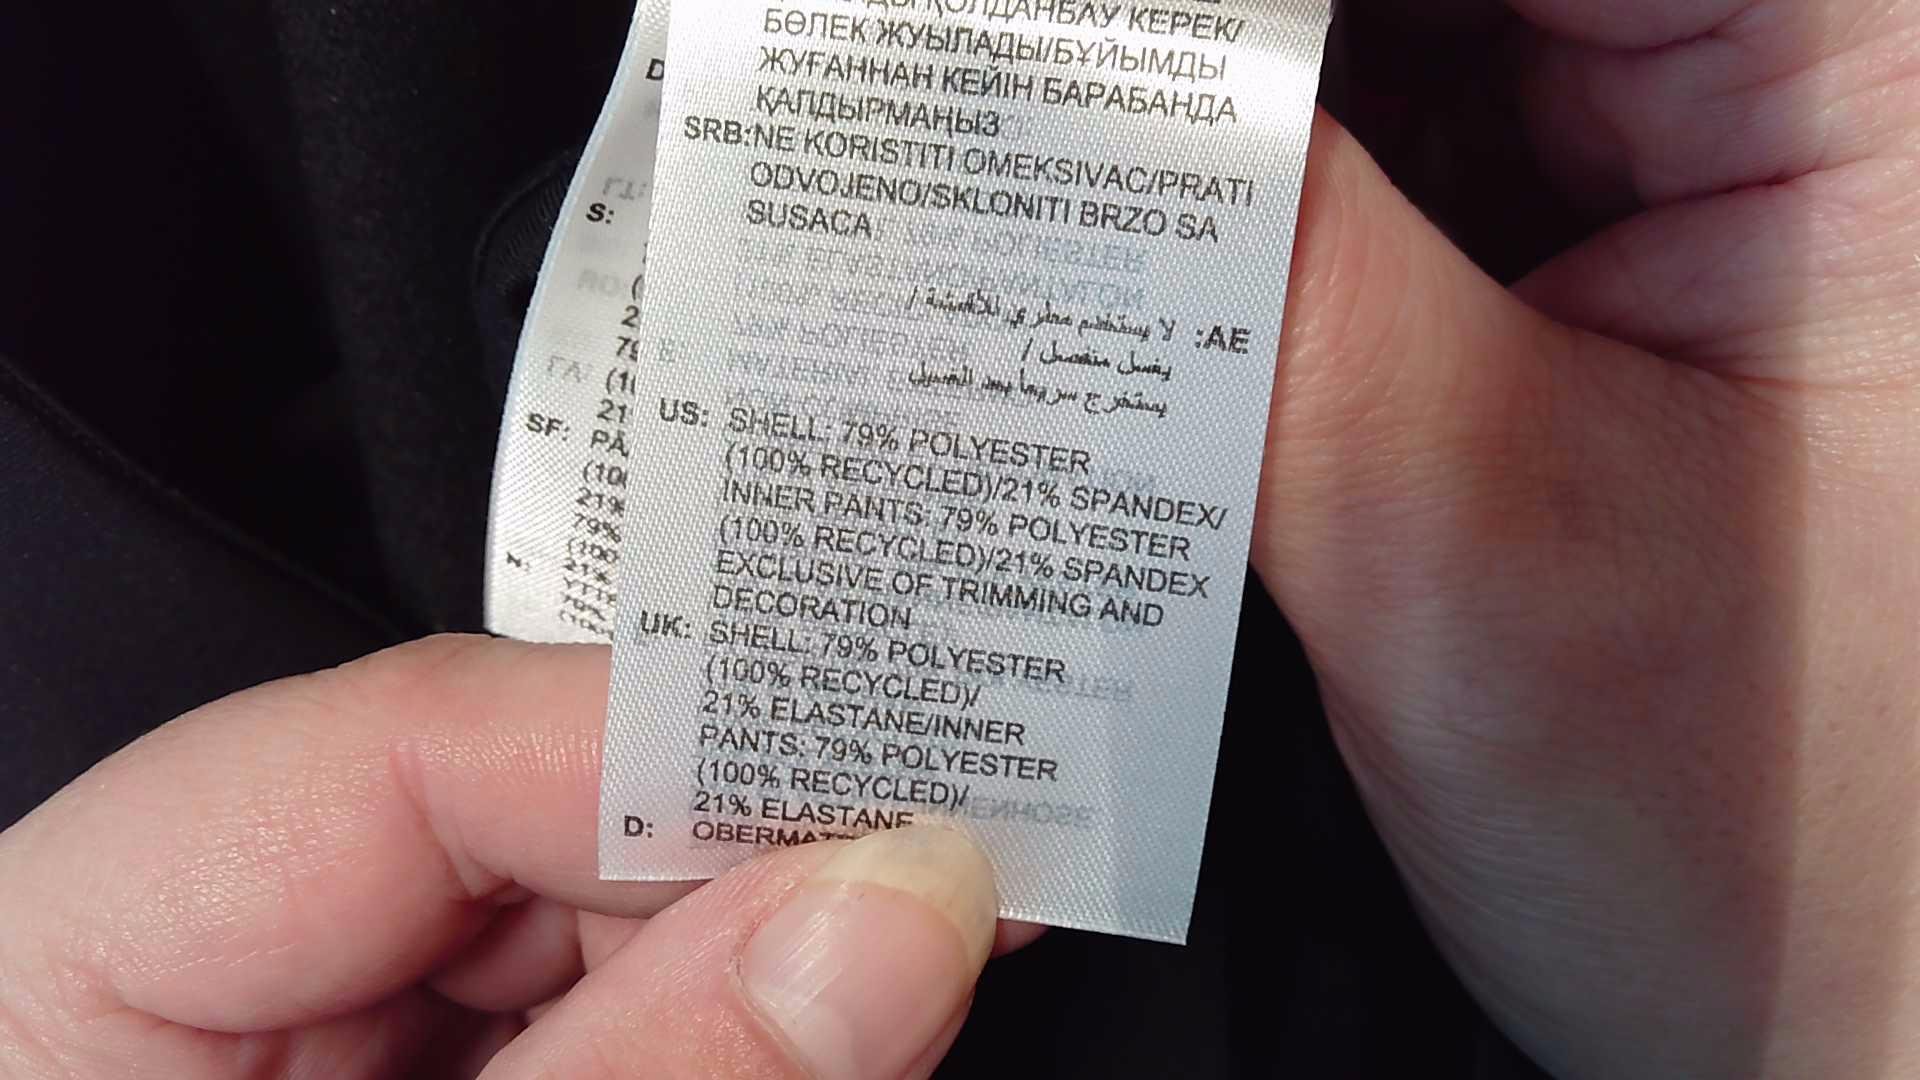 ҚОЛДАНБАУ КЕРЕК/
БӨЛЕК ЖУЫЛАДЫ/БҰЙЫМДЫ
ЖУҒАННАН КЕЙІН БАРАБАНДА
ҚАЛДЫРМАҢЫЗ
SRB: NE KORISTITI OMEKSIVAC/PRATI
ODVOJENO/SKLONITI BRZO SA
SUSACA
AE: لا يستخدم مطري للأقمشة /
يغسل منفصل /
يستخرج سريعا بعد الغسيل
US: SHELL: 79% POLYESTER
(100% RECYCLED)/21% SPANDEX/
INNER PANTS: 79% POLYESTER
(100% RECYCLED)/21% SPANDEX
EXCLUSIVE OF TRIMMING AND
DECORATION
UK: SHELL: 79% POLYESTER
(100% RECYCLED)/
21% ELASTANE/INNER
PANTS: 79% POLYESTER
(100% RECYCLED)/
21% ELASTANE
D:
S:
SF:
21%
79%
N:
21%